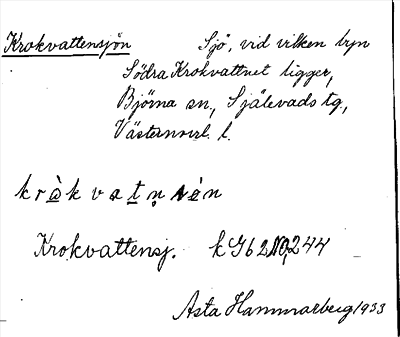 Krokvattensjön Sjö, vid vilken byn
Södra Krokvattnet ligger,
Björna sn., Själevads tg.,
Västernorrl. l.
kràkvatn̥sén
Krokvattensj. k 962 NO, 244
Asta Hammarberg 1933